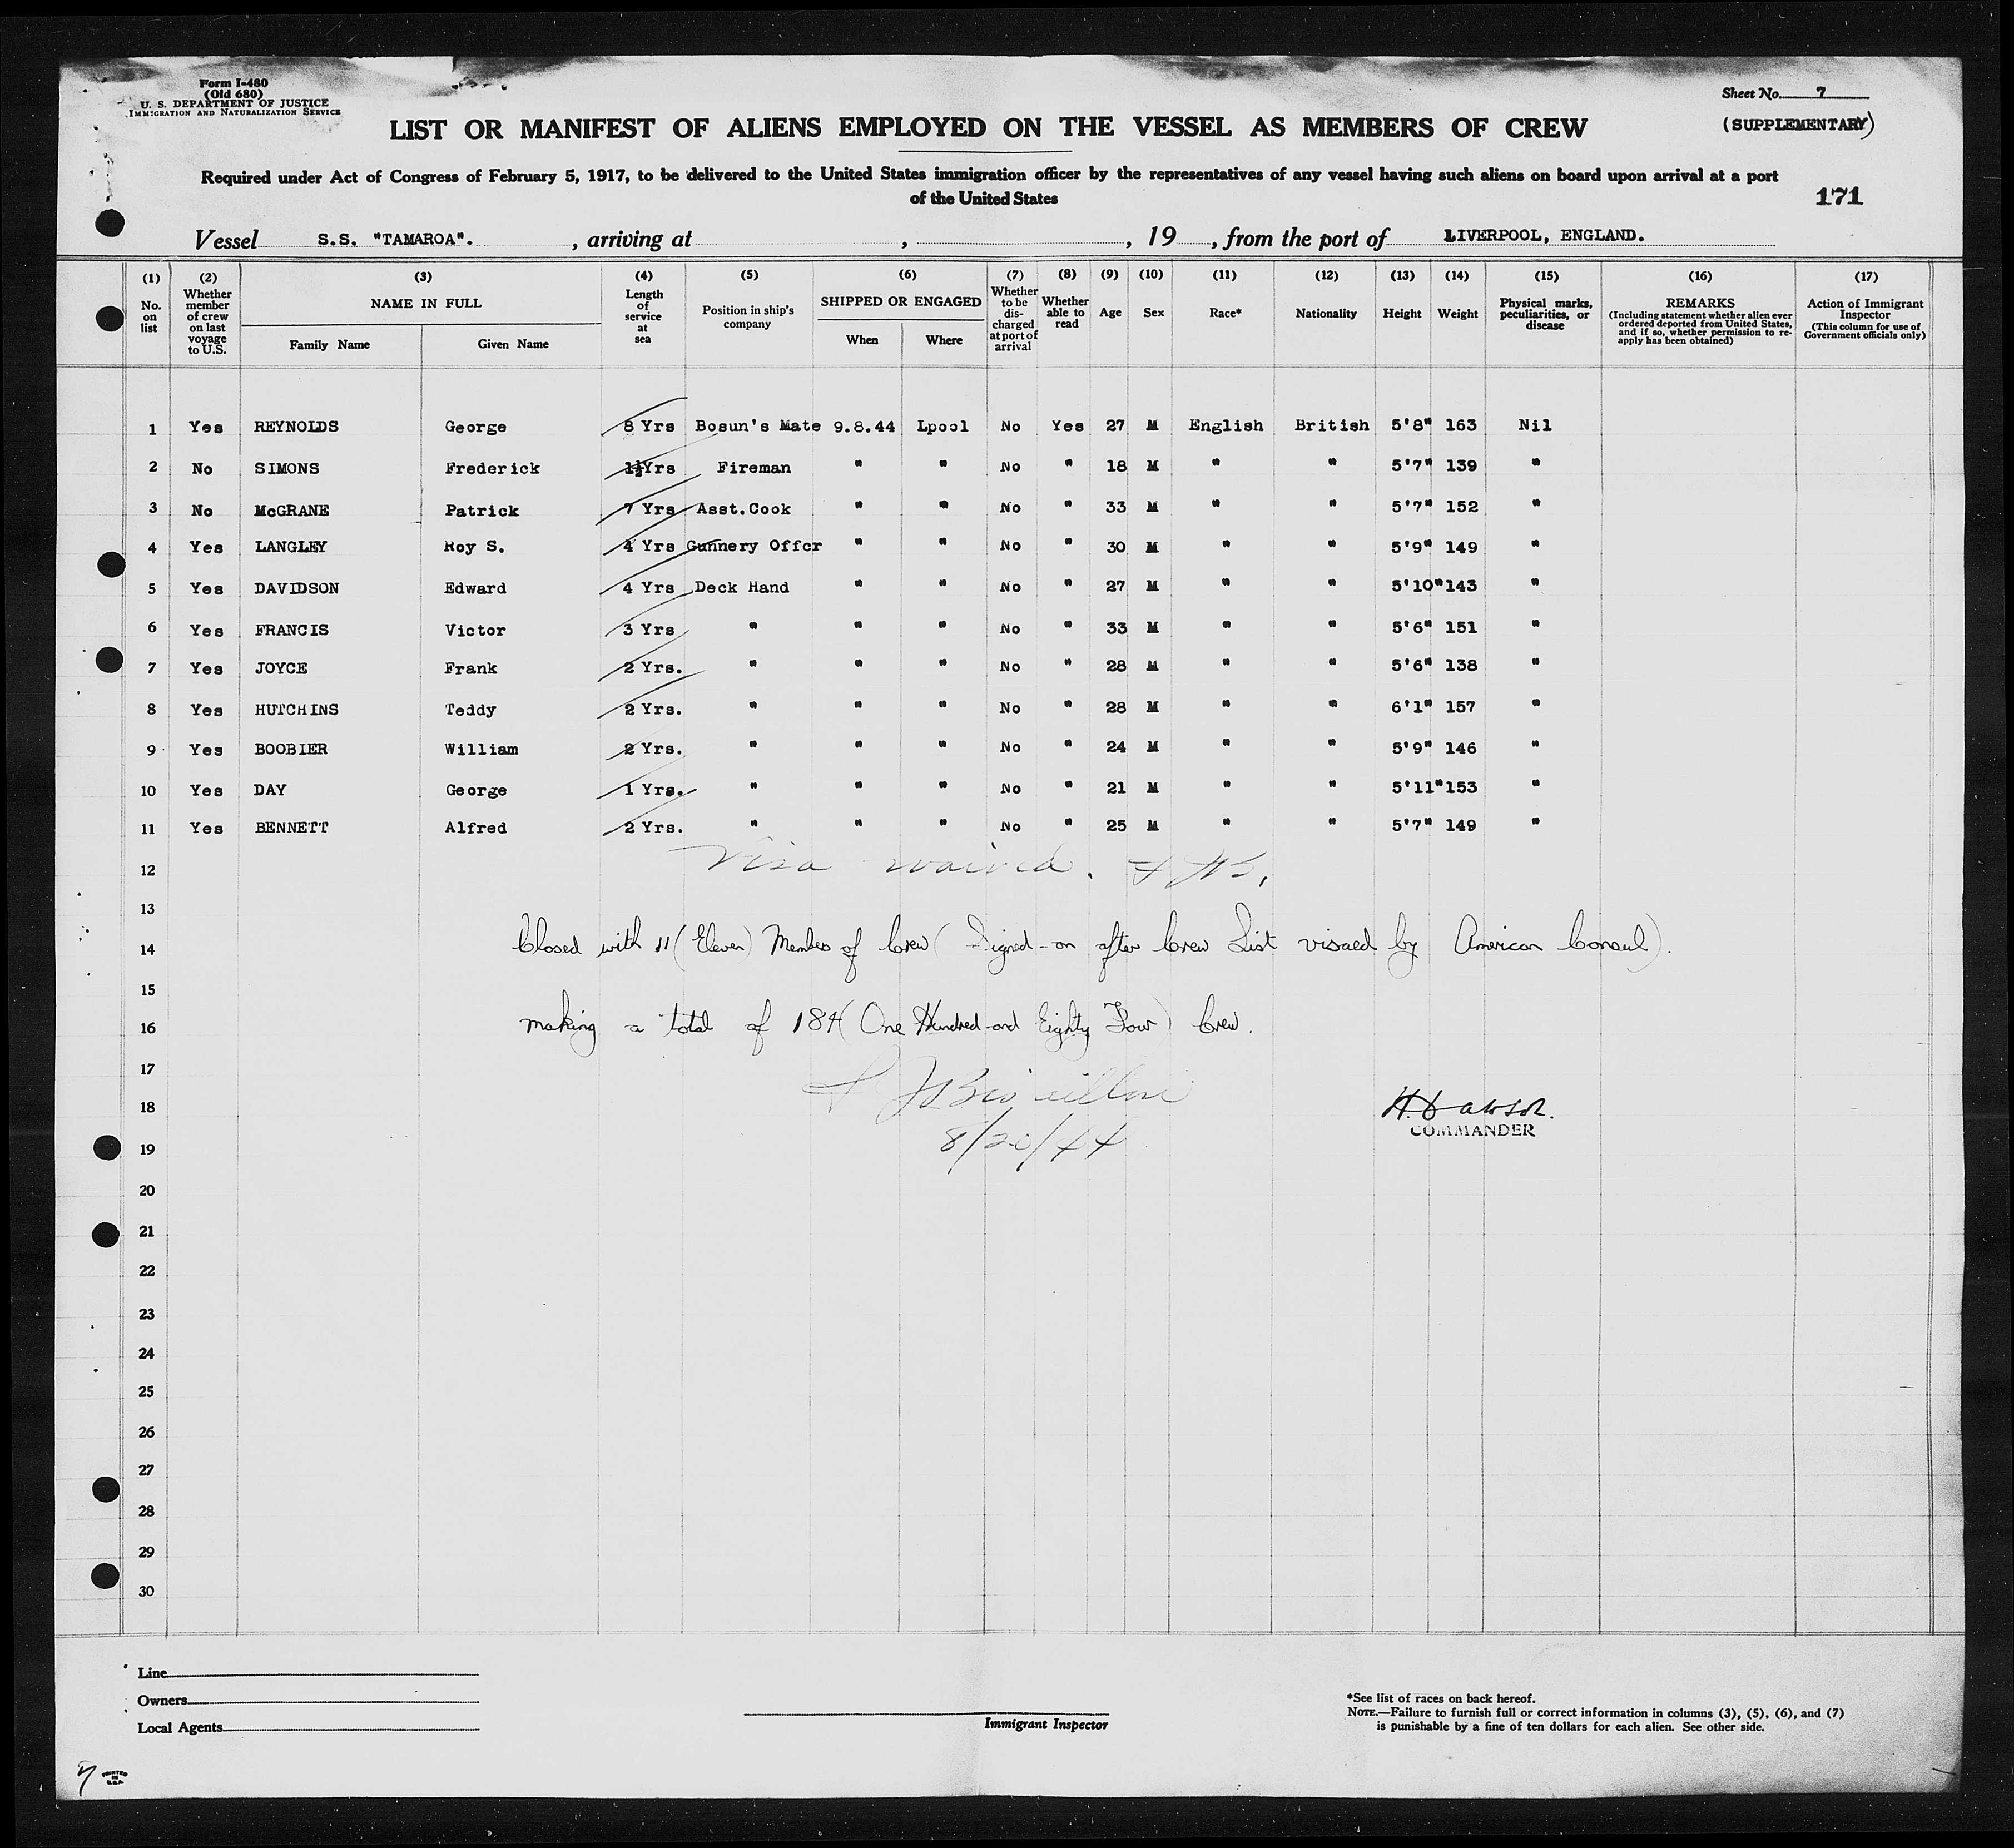 Form I-480
(Old 680)
U. S. DEPARTMENT OF JUSTICE
IMMIGRATION AND NATURALIZATION SERVICE
Sheet No. 7
(SUPPLEMENTARY)
LIST OR MANIFEST OF ALIENS EMPLOYED ON THE VESSEL AS MEMBERS OF CREW
Required under Act of Congress of February 5, 1917, to be delivered to the United States immigration officer by the representatives of any vessel having such aliens on board upon arrival at a port
of the United States
171
Vessel S.S. "TAMAROA". , arriving at , , 19 , from the port of LIVERPOOL, ENGLAND.
(1) No. on list
(2) Whether member of crew on last voyage to U.S.
(3) NAME IN FULL
Family Name Given Name
(4) Length of service at sea
(5) Position in ship's company
(6) SHIPPED OR ENGAGED
When Where
(7) Whether to be discharged at port of arrival
(8) Whether able to read
(9) Age
(10) Sex
(11) Race*
(12) Nationality
(13) Height
(14) Weight
(15) Physical marks, peculiarities, or disease
(16) REMARKS (Including statement whether alien ever ordered deported from United States, and if so, whether permission to re-apply has been obtained)
(17) Action of Immigrant Inspector (This column for use of Government officials only)
1 Yes REYNOLDS George 8 Yrs Bosun's Mate 9.8.44 Lpool No Yes 27 M English British 5'8" 163 Nil
2 No SIMONS Frederick 1½Yrs Fireman " " No " 18 M " " 5'7" 139 "
3 No McGRANE Patrick 7 Yrs Asst.Cook " " No " 33 M " " 5'7" 152 "
4 Yes LANGLEY Roy S. 4 Yrs Gunnery Offcr " " No " 30 M " " 5'9" 149 "
5 Yes DAVIDSON Edward 4 Yrs Deck Hand " " No " 27 M " " 5'10" 143 "
6 Yes FRANCIS Victor 3 Yrs " " " No " 33 M " " 5'6" 151 "
7 Yes JOYCE Frank 2 Yrs. " " " No " 28 M " " 5'6" 138 "
8 Yes HUTCHINS Teddy 2 Yrs. " " " No " 28 M " " 6'1" 157 "
9 Yes BOOBIER William 2 Yrs. " " " No " 24 M " " 5'9" 146 "
10 Yes DAY George 1 Yrs. " " " No " 21 M " " 5'11" 153 "
11 Yes BENNETT Alfred 2 Yrs. " " " No " 25 M " " 5'7" 149 "
12 Visa waived.
13
14 Closed with 11 (Eleven) Members of Crew (Signed-on after Crew List visaed by American Consul).
15
16 making a total of 184 (One Hundred and Eighty Four) Crew.
17
18 H. Dawson.
COMMANDER
19 8/20/44
20
21
22
23
24
25
26
27
28
29
30
Line
Owners
Local Agents
Immigrant Inspector
*See list of races on back hereof.
NOTE.—Failure to furnish full or correct information in columns (3), (5), (6), and (7)
is punishable by a fine of ten dollars for each alien. See other side.
7
PRINTED
IN
U.S.A.